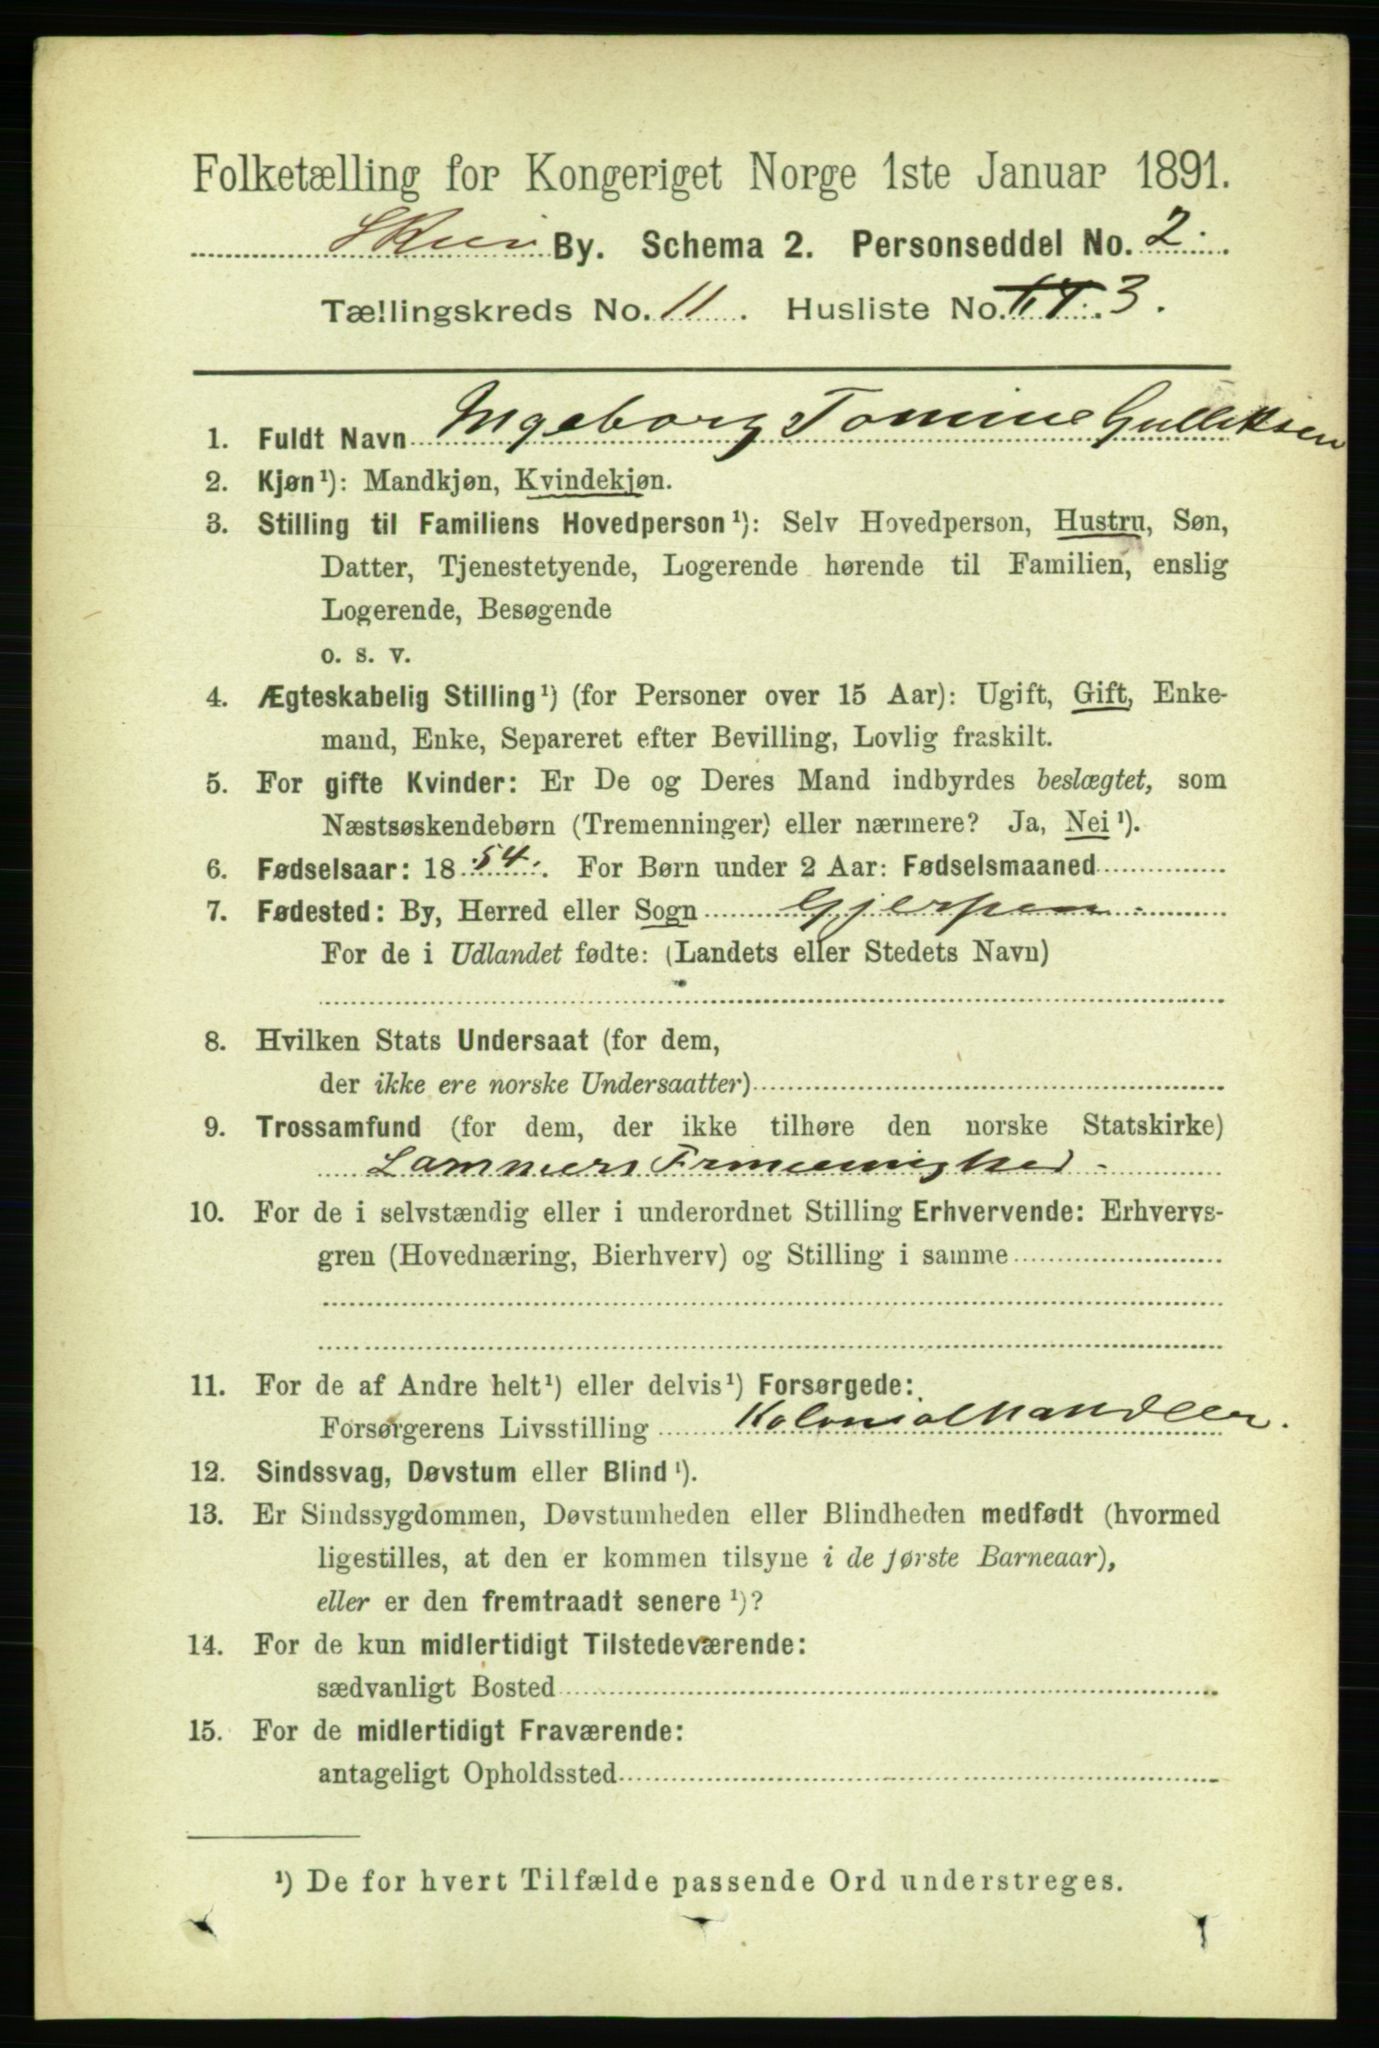 Folketælling for Kongeriget Norge 1ste Januar 1891.
Skien By. Schema 2. Personseddel No. 2.
Tællingskreds No. 11. Husliste No. 3.
1. Fuldt Navn Ingeborg Tomine Gulliksen
2. Kjøn¹): Mandkjøn, Kvindekjøn.
3. Stilling til Familiens Hovedperson¹): Selv Hovedperson, Hustru, Søn,
Datter, Tjenestetyende, Logerende hørende til Familien, enslig
Logerende, Besøgende
o. s. v.
4. Ægteskabelig Stilling¹) (for Personer over 15 Aar): Ugift, Gift, Enke-
mand, Enke, Separeret efter Bevilling, Lovlig fraskilt.
5. For gifte Kvinder: Er De og Deres Mand indbyrdes beslægtet, som
Næstsøskendebørn (Tremenninger) eller nærmere? Ja, Nei¹).
6. Fødselsaar: 1854. For Børn under 2 Aar: Fødselsmaaned
7. Fødested: By, Herred eller Sogn Gjerpen
For de i Udlandet fødte: (Landets eller Stedets Navn)
8. Hvilken Stats Undersaat (for dem,
der ikke ere norske Undersaatter)
9. Trossamfund (for dem, der ikke tilhøre den norske Statskirke)
Lammers
10. For de i selvstændig eller i underordnet Stilling Erhvervende: Erhvervs-
gren (Hovednæring, Bierhverv) og Stilling i samme
11. For de af Andre helt¹) eller delvis¹) Forsørgede:
Forsørgerens Livsstilling Kolonialhandler.
12. Sindssvag, Døvstum eller Blind¹).
13. Er Sindssygdommen, Døvstumheden eller Blindheden medfødt (hvormed
ligestilles, at den er kommen tilsyne i de første Barneaar),
eller er den fremtraadt senere¹)?
14. For de kun midlertidigt Tilstedeværende:
sædvanligt Bosted
15. For de midlertidigt Fraværende:
antageligt Opholdssted
¹) De for hvert Tilfælde passende Ord understreges.